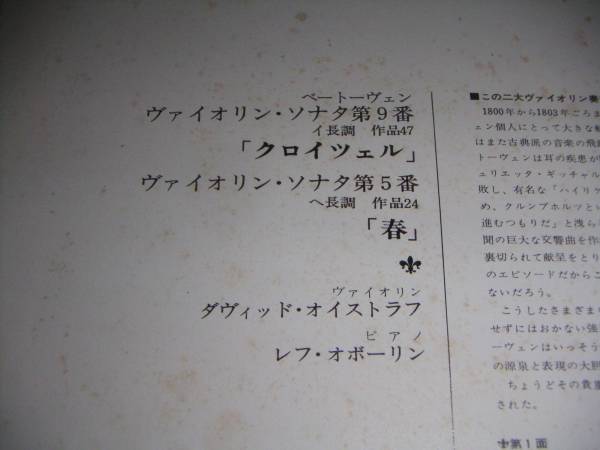 ベートーヴェン
ヴァイオリン・ソナタ第9番
イ長調 作品47
「クロイツェル」
ヴァイオリン・ソナタ第5番
ヘ長調 作品24
「春」
ヴァイオリン
ダヴィッド・オイストラフ
ピアノ
レフ・オボーリン
■この二大ヴァイオリン奏
1800年から1803年ごろま
ェン個人にとって大きな
はまた古典派の音楽の飛
トーヴェンは耳の疾患が
ュリエッタ・ギッチャル
敗し、有名な「ハイリゲ
め、クルンプホルツとい
進むつもりだ」と洩ら
聞の巨大な交響曲を作
裏切られて献呈をとり
のエピソードだからこ
ないだろう。
こうしたさまざま
せずにはおかない強
ーヴェンはいっそう
の源泉と表現の大胆
ちょうどその貴重
された。
第1面